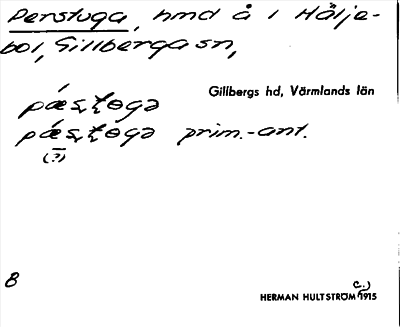 Perstuga, hmd å i Hälje-
bol, Gillberga sn,
Gillbergs hd, Värmlands län
pǽʂʈɵgə
pǽʂʈɵgə prim.-ant.
(?)
8
c.)
HERMAN HULTSTRÖM 1915